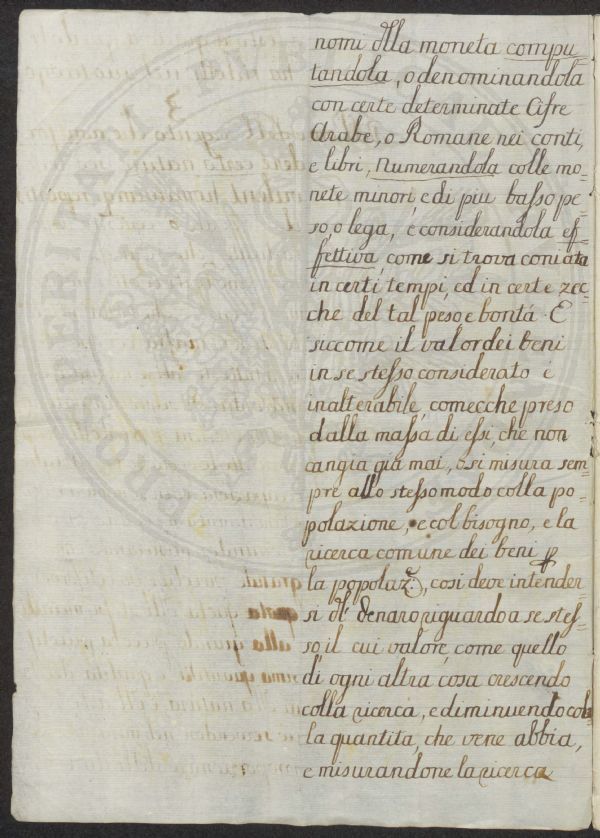 nomi dlla moneta compu
tandola, o denominandola
con certe determinate Cifre
Arabe, o Romane nei conti,
e libri, numerandola colle mo=
nete minori, e di piu basso pe=
so, o lega, e considerandola ef=
fettiva, come si trova coniata
in certi tempi, ed in certe zec=
che del tal peso e bontá. E
siccome il valor dei beni
in se stesso considerato é
inalterabile, comecche preso
dalla massa di essi, che non
cangia già mai, o si misura sem=
pre allo stesso modo colla po=
polazione, e col bisogno, e la
ricerca comune dei beni p
la popolaze, cosi deve intender=
si dl denaro riguardo a se stes=
so, il cui valore, come quello
di ogni altra cosa crescendo
colla ricerca, e diminuendo col
la quantita, che vene abbia,
e misurandone la ricerca
PROSPERITATI PVBLICAE